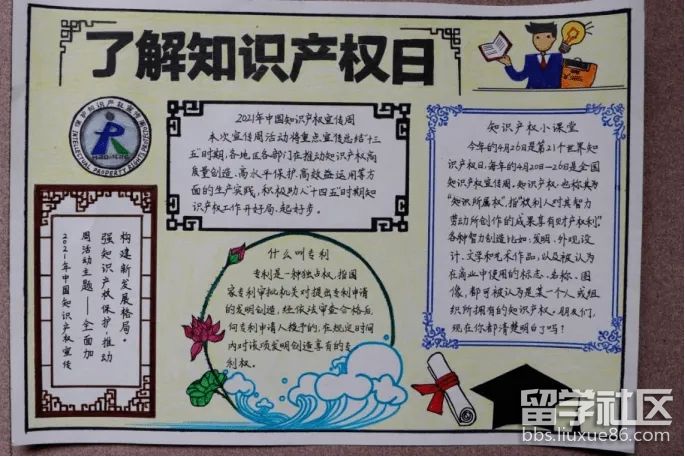 了解知识产权日
保护知识产权宣传周
INTELLECTUAL PROPERTY RIGHTS
2021年中国知识产权宣传周
本次宣传周活动将重点宣传总结"十三
五"时期,各地区各部门在推动知识产权高
质量创造、高水平保护、高效益运用等方
面的生产实践,积极助入"十四五"时期知
识产权工作开好局、起好步。
知识产权小课堂
今年的4月26日是第21个世界知
识产权日,每年的4月20日—26日是全国
知识产权宣传周。知识产权,也称其为
"知识所属权",指"权利人对其智力
劳动所创作的成果享有财产权利"。
各种智力创造比如:发明、外观设
计、文学和艺术作品,以及被认为
在商业中使用的标志、名称、图
像,都可被认为是某一个人或组
织所拥有的知识产权。朋友们,
现在你都清楚明白了吗!
2021年中国知识产权宣传
周活动主题——全面加
强知识产权保护,推动
构建新发展格局。
什么叫专利
专利是一种独占权,指国
家专利审批机关对提出专利申请
的发明创造,经依法审查合格后,
向专利申请人授予的,在规定时间
内对该项发明创造享有的专
利权。
留学社区
bbs.liuxue86.com